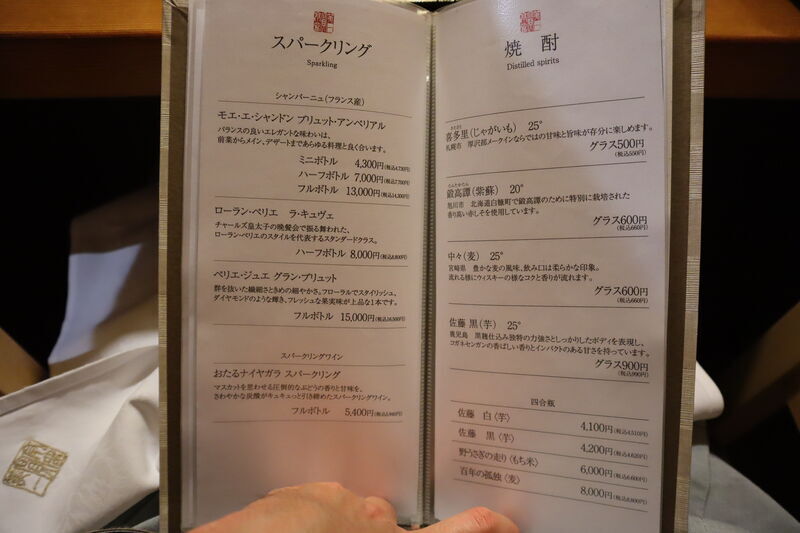 スパークリング
Sparkling
シャンパーニュ(フランス産)
モエ・エ・シャンドン ブリュット・アンペリアル
バランスの良いエレガントな味わいは、
前菜からメイン、デザートまであらゆる料理と良く合います。
ミニボトル 4,300円(税込4,730円)
ハーフボトル 7,000円(税込7,700円)
フルボトル 13,000円(税込14,300円)
ローラン・ペリエ ラ・キュヴェ
チャールズ皇太子の晩餐会で振る舞われた、
ローラン・ペリエのスタイルを代表するスタンダードクラス。
ハーフボトル 8,000円(税込8,800円)
ペリエ・ジュエ グラン・ブリュット
群を抜いた繊細さときめの細やかさ。フローラルでスタイリッシュ、
ダイヤモンドのような輝き、フレッシュな果実味が上品な1本です。
フルボトル 15,000円(税込16,500円)
スパークリングワイン
おたるナイヤガラ スパークリング
マスカットを思わせる圧倒的なぶどうの香りと甘味を、
さわやかな炭酸がキュキュっと引き締めたスパークリングワイン。
フルボトル 5,400円(税込5,940円)
焼酎
Distilled spirits
喜多里(じゃがいも) 25°
札幌市 厚沢部メークインならではの甘味と旨味が存分に楽しめます。
グラス500円
(税込550円)
鍛高譚(紫蘇) 20°
旭川市 北海道白糠町で鍛高譚のために特別に栽培された
香り高い赤しそを使用しています。
グラス600円
(税込660円)
中々(麦) 25°
宮崎県 豊かな麦の風味、飲み口は柔らかな印象。
流れる様にウィスキーの様なコクと香りが流れます。
グラス600円
(税込660円)
佐藤 黒(芋) 25°
鹿児島 黒麹仕込み独特の力強さとしっかりしたボディを表現し、
コガネセンガンの香ばしい香りとインパクトのある甘さを持っています。
グラス900円
(税込990円)
四合瓶
佐藤 白〈芋〉 4,100円(税込4,510円)
佐藤 黒〈芋〉 4,200円(税込4,620円)
野うさぎの走り〈もち米〉 6,000円(税込6,600円)
百年の孤独〈麦〉 8,000円(税込8,800円)